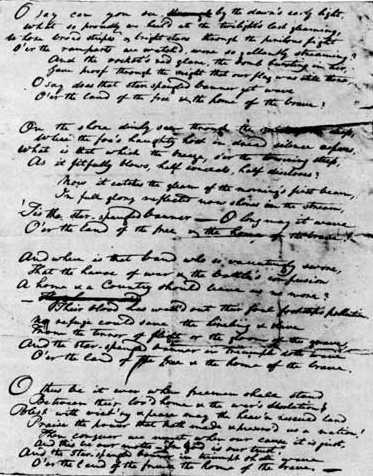 O say can you see by the dawn's early light,
What so proudly we hail'd at the twilight's last gleaming,
Whose broad stripes & bright stars through the perilous fight
O'er the ramparts we watch'd, were so gallantly streaming?
And the rocket's red glare, the bomb bursting in air,
Gave proof through the night that our flag was still there,
O say does that star-spangled banner yet wave
O'er the land of the free & the home of the brave?
On the shore dimly seen through the deep,
Where the foe's haughty host in dread silence reposes,
What is that which the breeze, o'er the towering steep,
As it fitfully blows, half conceals, half discloses?
Now it catches the gleam of the morning's first beam,
In full glory reflected now shines in the stream,
'Tis the star-spangled banner — O long may it wave
O'er the land of the free & the home of the brave!
And where is that band who so vauntingly swore,
That the havoc of war & the battle's confusion
A home & a Country should leave us no more?
Their blood has wash'd out their foul footstep's pollution
No refuge could save the hireling & slave
From the terror of flight or the gloom of the grave,
And the star-spangled banner in triumph doth wave
O'er the land of the free & the home of the brave.
O thus be it ever when freemen shall stand
Between their lov'd home & the war's desolation!
Blest with vict'ry & peace may the heav'n rescued land
Praise the power that hath made & preserv'd us a nation!
Then conquer we must, when our cause it is just,
And this be our motto - "In God is our trust,"
And the star-spangled banner in triumph shall wave
O'er the land of the free & the home of the brave. —